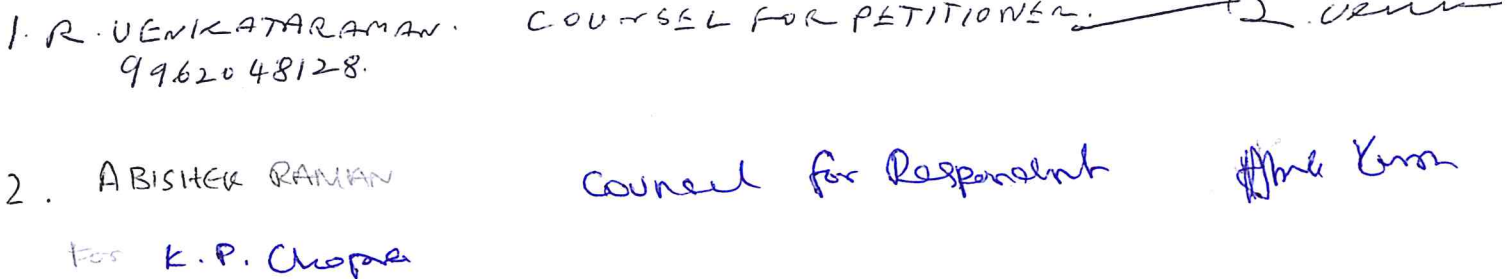 1. R. VENKATARAMAN. COUNSEL FOR PETITIONER.
9962048128.
2. ABISHEK RAMAN Counsel for Respondent
For K.P. Chopra